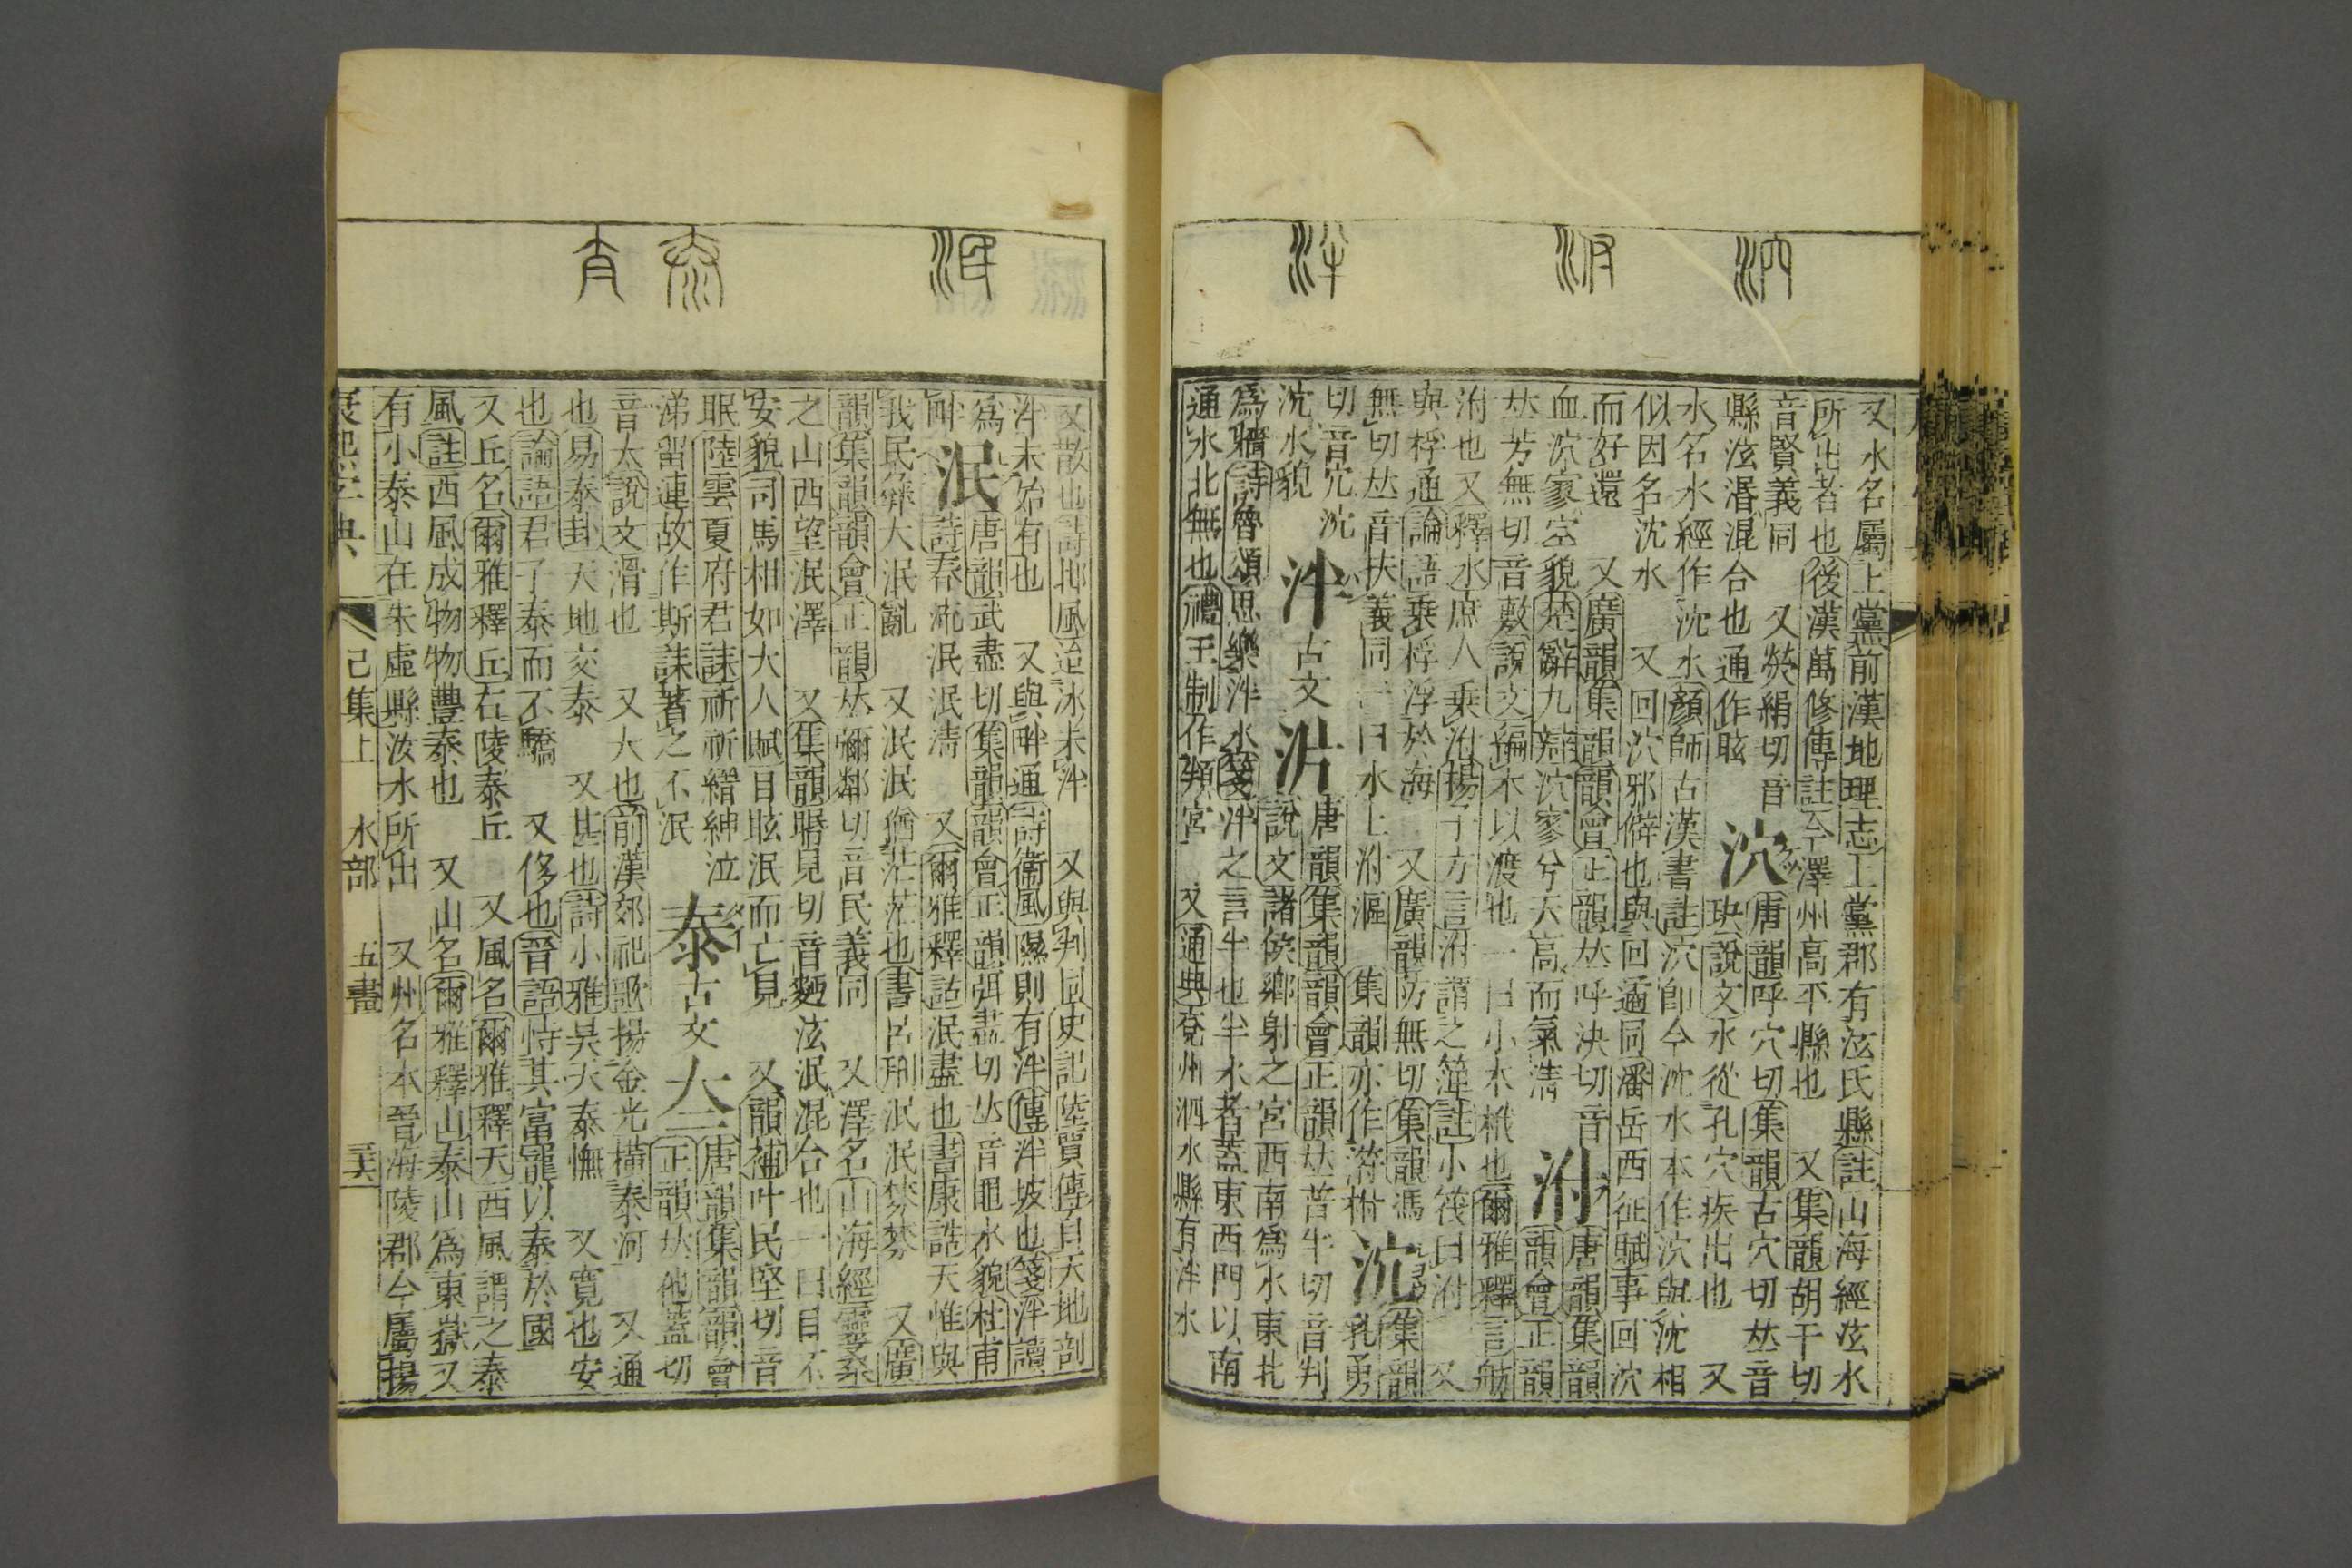 又水名屬上黨前漢地理志上黨郡有泫氏縣註山海經泫水
所出者也後漢萬修傳註今澤州高平縣也 又集韻胡千切
音賢義同 又熒絹切音 泬 唐韻呼穴切集韻古穴切𠀤音
縣泫湣混合也通作眩 玦說文水從孔穴疾出也 又
水名水經作沈水顏師古漢書註泬卽今沈水本作泬與沈相
似因名沈水 又回泬邪僻也與回遹同潘岳西征賦事回泬
而好還 又廣韻集韻韻會正韻𠀤呼決切音 泭 唐韻集韻
血泬寥空貌楚辭九辯泬寥兮天高而氣清 韻會正韻
𠀤芳無切音敷說文編木以渡也一曰小木栰也爾雅釋言舫
泭也又釋水庶人乘泭揚子方言泭謂之䉬註小筏曰泭 又
與桴通論語乘桴浮於海 又廣韻防無切集韻馮 沉 集韻
無切𠀤音扶義同一曰水上泭漚 集韻亦作 柎 乳勇
切音冗沉 泮 古文 唐韻集韻韻會正韻𠀤普半切音判
沈水貌 說文諸侯鄉射之宮西南爲水東北
爲牆詩魯頌思樂泮水箋泮之言半也半水者蓋東西門以南
通水北無也禮王制作頖宮 又通典兗州泗水縣有泮水
又散也詩邶風迨冰未泮 又與判同史記陸賈傳自天地剖
泮未始有也 又與畔通詩衞風隰則有泮傳泮坡也箋泮讀
爲 泯 唐韻武盡切集韻韻會正韻弭盡切𠀤音黽水貌杜甫
畔 詩春流泯泯淸 又爾雅釋詁泯盡也書康誥天惟與
我民彝大泯亂 又泯泯猶茫茫也書呂刑泯泯棼棼 又廣
韻集韻韻會正韻𠀤彌鄰切音民義同 又澤名山海經靈夔桑
之山西望泯澤 又集韻眠見切音麪泫泯混合也一曰目不
安貌司馬相如大人賦目眩泯而亡見 又韻補叶民堅切音
眠陸雲夏府君誄祈祈縉紳泣 泰 古文 夳 唐韻集韻韻會
涕留連故作斯誄著之不泯 正韻𠀤他蓋切
音太說文滑也 又大也前漢郊祀歌揚金光橫泰河 又通
也易泰卦天地交泰 又甚也詩小雅昊天泰憮 又寬也安
也論語君子泰而不驕 又侈也晉語恃其富寵以泰於國
又丘名爾雅釋丘右陵泰丘 又風名爾雅釋天西風謂之泰
風註西風成物物豐泰也 又山名爾雅釋山泰山爲東嶽又
有小泰山在朱虛縣汶水所出 又州名本晉海陵郡今屬揚
康熙字典 巳集上 水部 五畫